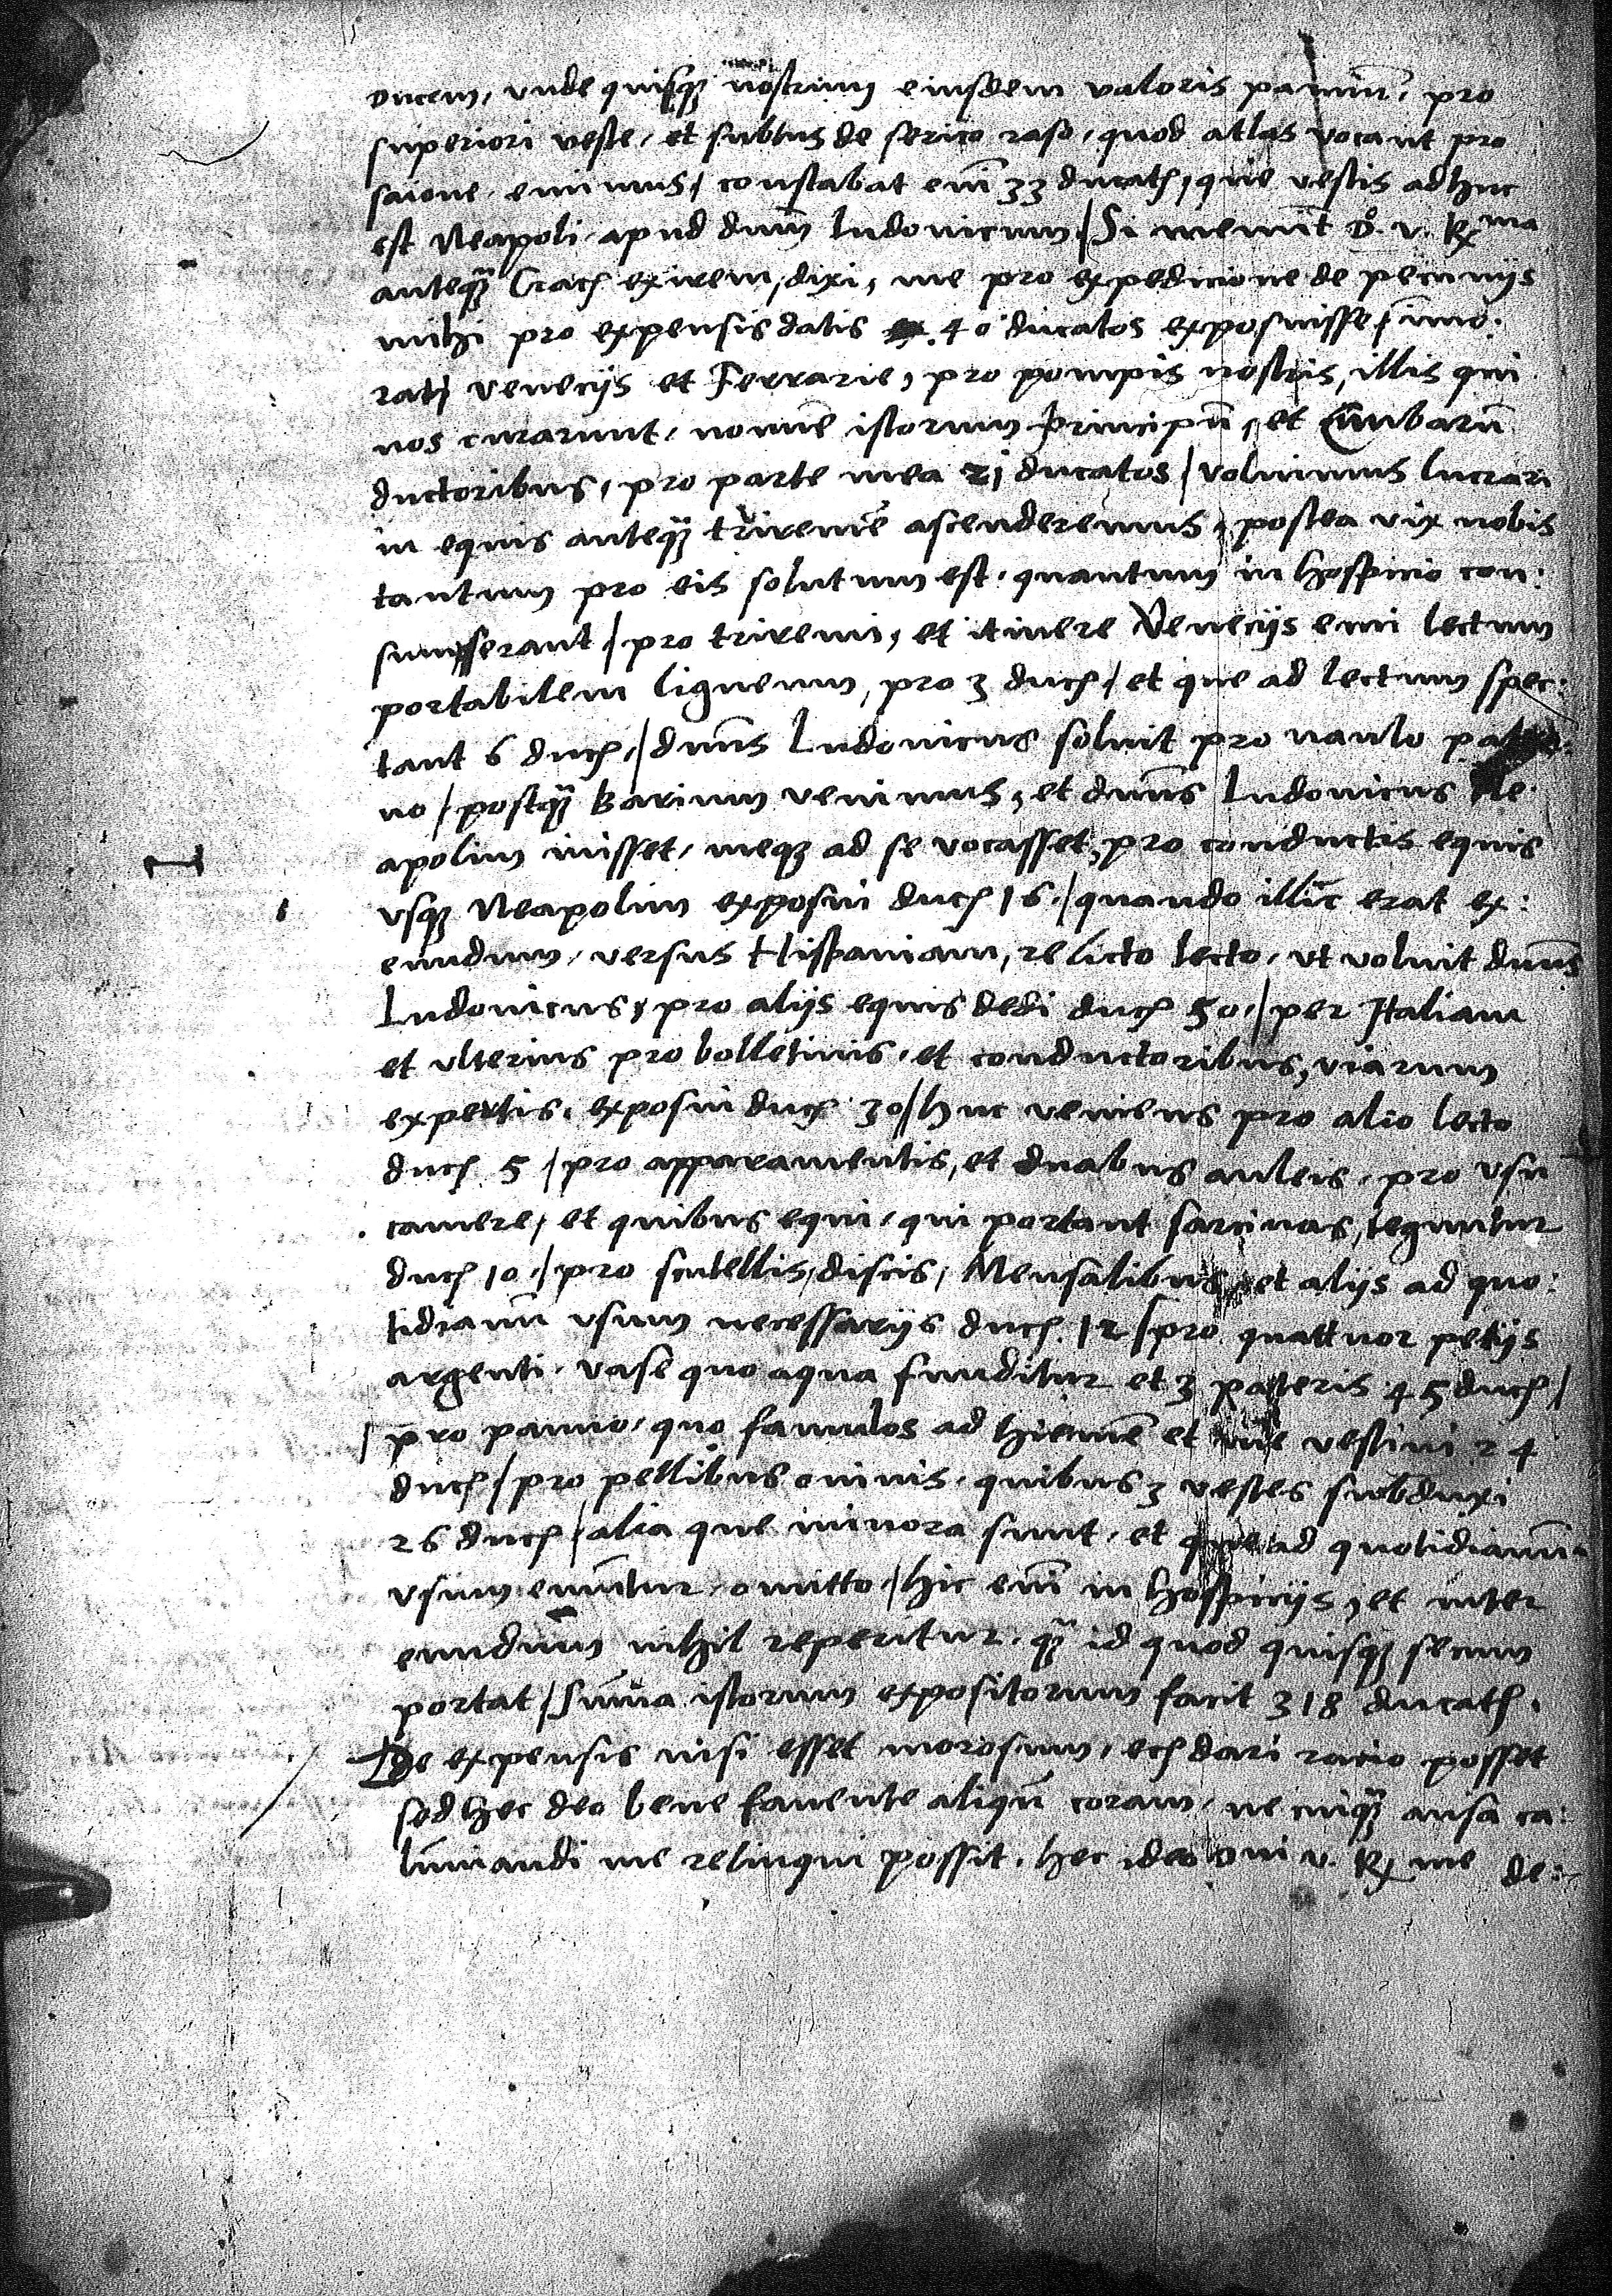 ducem, vnde quisqз nostrum eiusdem valoris pannũ, pro
superiori veste, et subtus de serico raso, quod atlas vocant pro
saione, emimus, constabat em̃ 33 ducatꝭ, que vestis adhuc
est Neapoli apud dnum̃ Ludovicum / Si meminit D. v. Rma
anteqз̃ Cracꝭ exirem, dixi, me pro expedicione de pecunijs
mihi pro expensis datis 40 ducatos exposuisse, imo:
ratꝭ Venecijs et Ferrarie, pro pompis nostris, illis qui
nos curarunt, nomine istorum Principũ, et cimbarũ
ductoribus, pro parte mea 21 ducatos / voluimus lucrari
in equis anteqз̃ triremẽ ascenderemus, postea vix nobis
tantum pro eis solutum est, quantum in hospicio con:
sumpserant / pro triremi, et itinere Venecijs emi lectum
portabilem ligneum, pro 3 ducꝭ / et que ad lectum spec:
tant 6 ducꝭ, / dnus̃ Ludovicus solvit pro naulo
no / postqз̃ Barium venimus, et dnus̃ Ludovicus Ne
apolim ivisset, meqз ad se vocasset, pro conductis equis
vsqз Neapolim exposui ducꝭ 16, / quando illic erat ex:
eundum, versus Hispaniam, relicto lecto, vt voluit dnus̃
Ludovicus, pro alijs equis dedi ducꝭ 50, / per Italiam
et vlterius pro bolletinis, et conductoribus, viarum
expertis, exposui ducꝭ 30 / huc veniens pro alio lecto
ducꝭ 5 / pro apparamentis, et duabus auleis, pro vsu
camere, et quibus equi, qui portant sarcinas, teguntur
ducꝭ 10, / pro scutellis, discis, Mensalibus, et alijs ad quo:
tidianũ vsum necessarijs ducꝭ. 12 / pro quattuor petijs
argenti, vase quo aqua funditur et 3 pateris 45 ducꝭ /
/ pro panno, quo famulos ad hiemẽ et me vestivi 24
ducꝭ / pro pellibus ovinis, quibus 3 vestes subduxi
26 ducꝭ / alia que minora sunt, et que ad quotidianũ
vsum emũtur, omitto, / hic em̃ in hospicijs, et inter
eundum nihil reperitur, qз̃ id quod quisqз secum
portat / Sum̃a istorum expositorum facit 318 ducatꝭ.
De expensis nisi esset morosum, ecꝭ dari racio posset
sed hec deo bene favente aliqñ coram, ne cuiqз̃ ansa ca:
lumniandi me relinqui possit, hec ideo dni v. R me de: